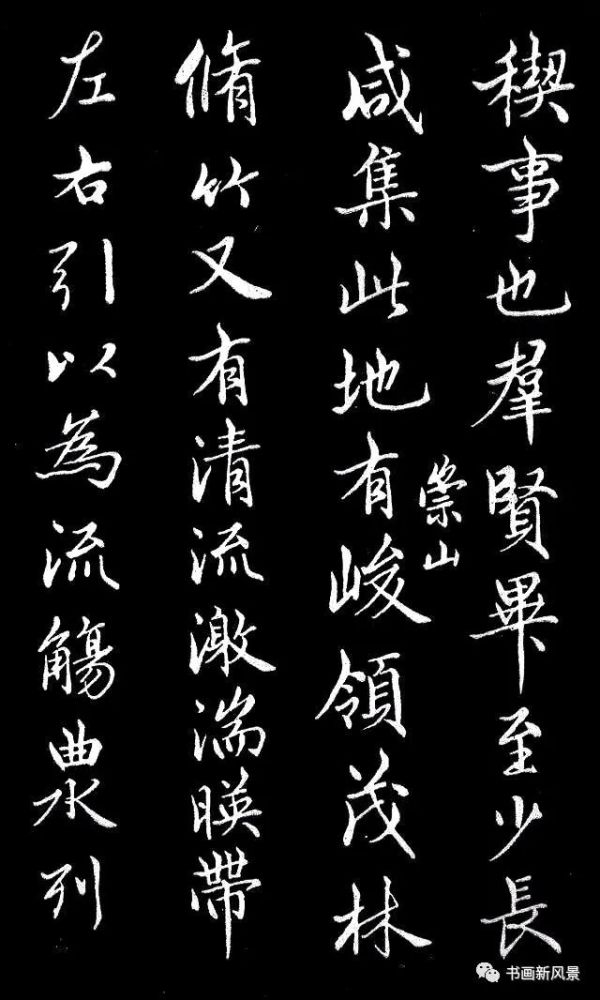 稧事也羣賢畢至少長
崇山
咸集此地有峻領茂林
脩竹又有清流激湍暎帶
左右引以為流觴曲水列
书画新风景